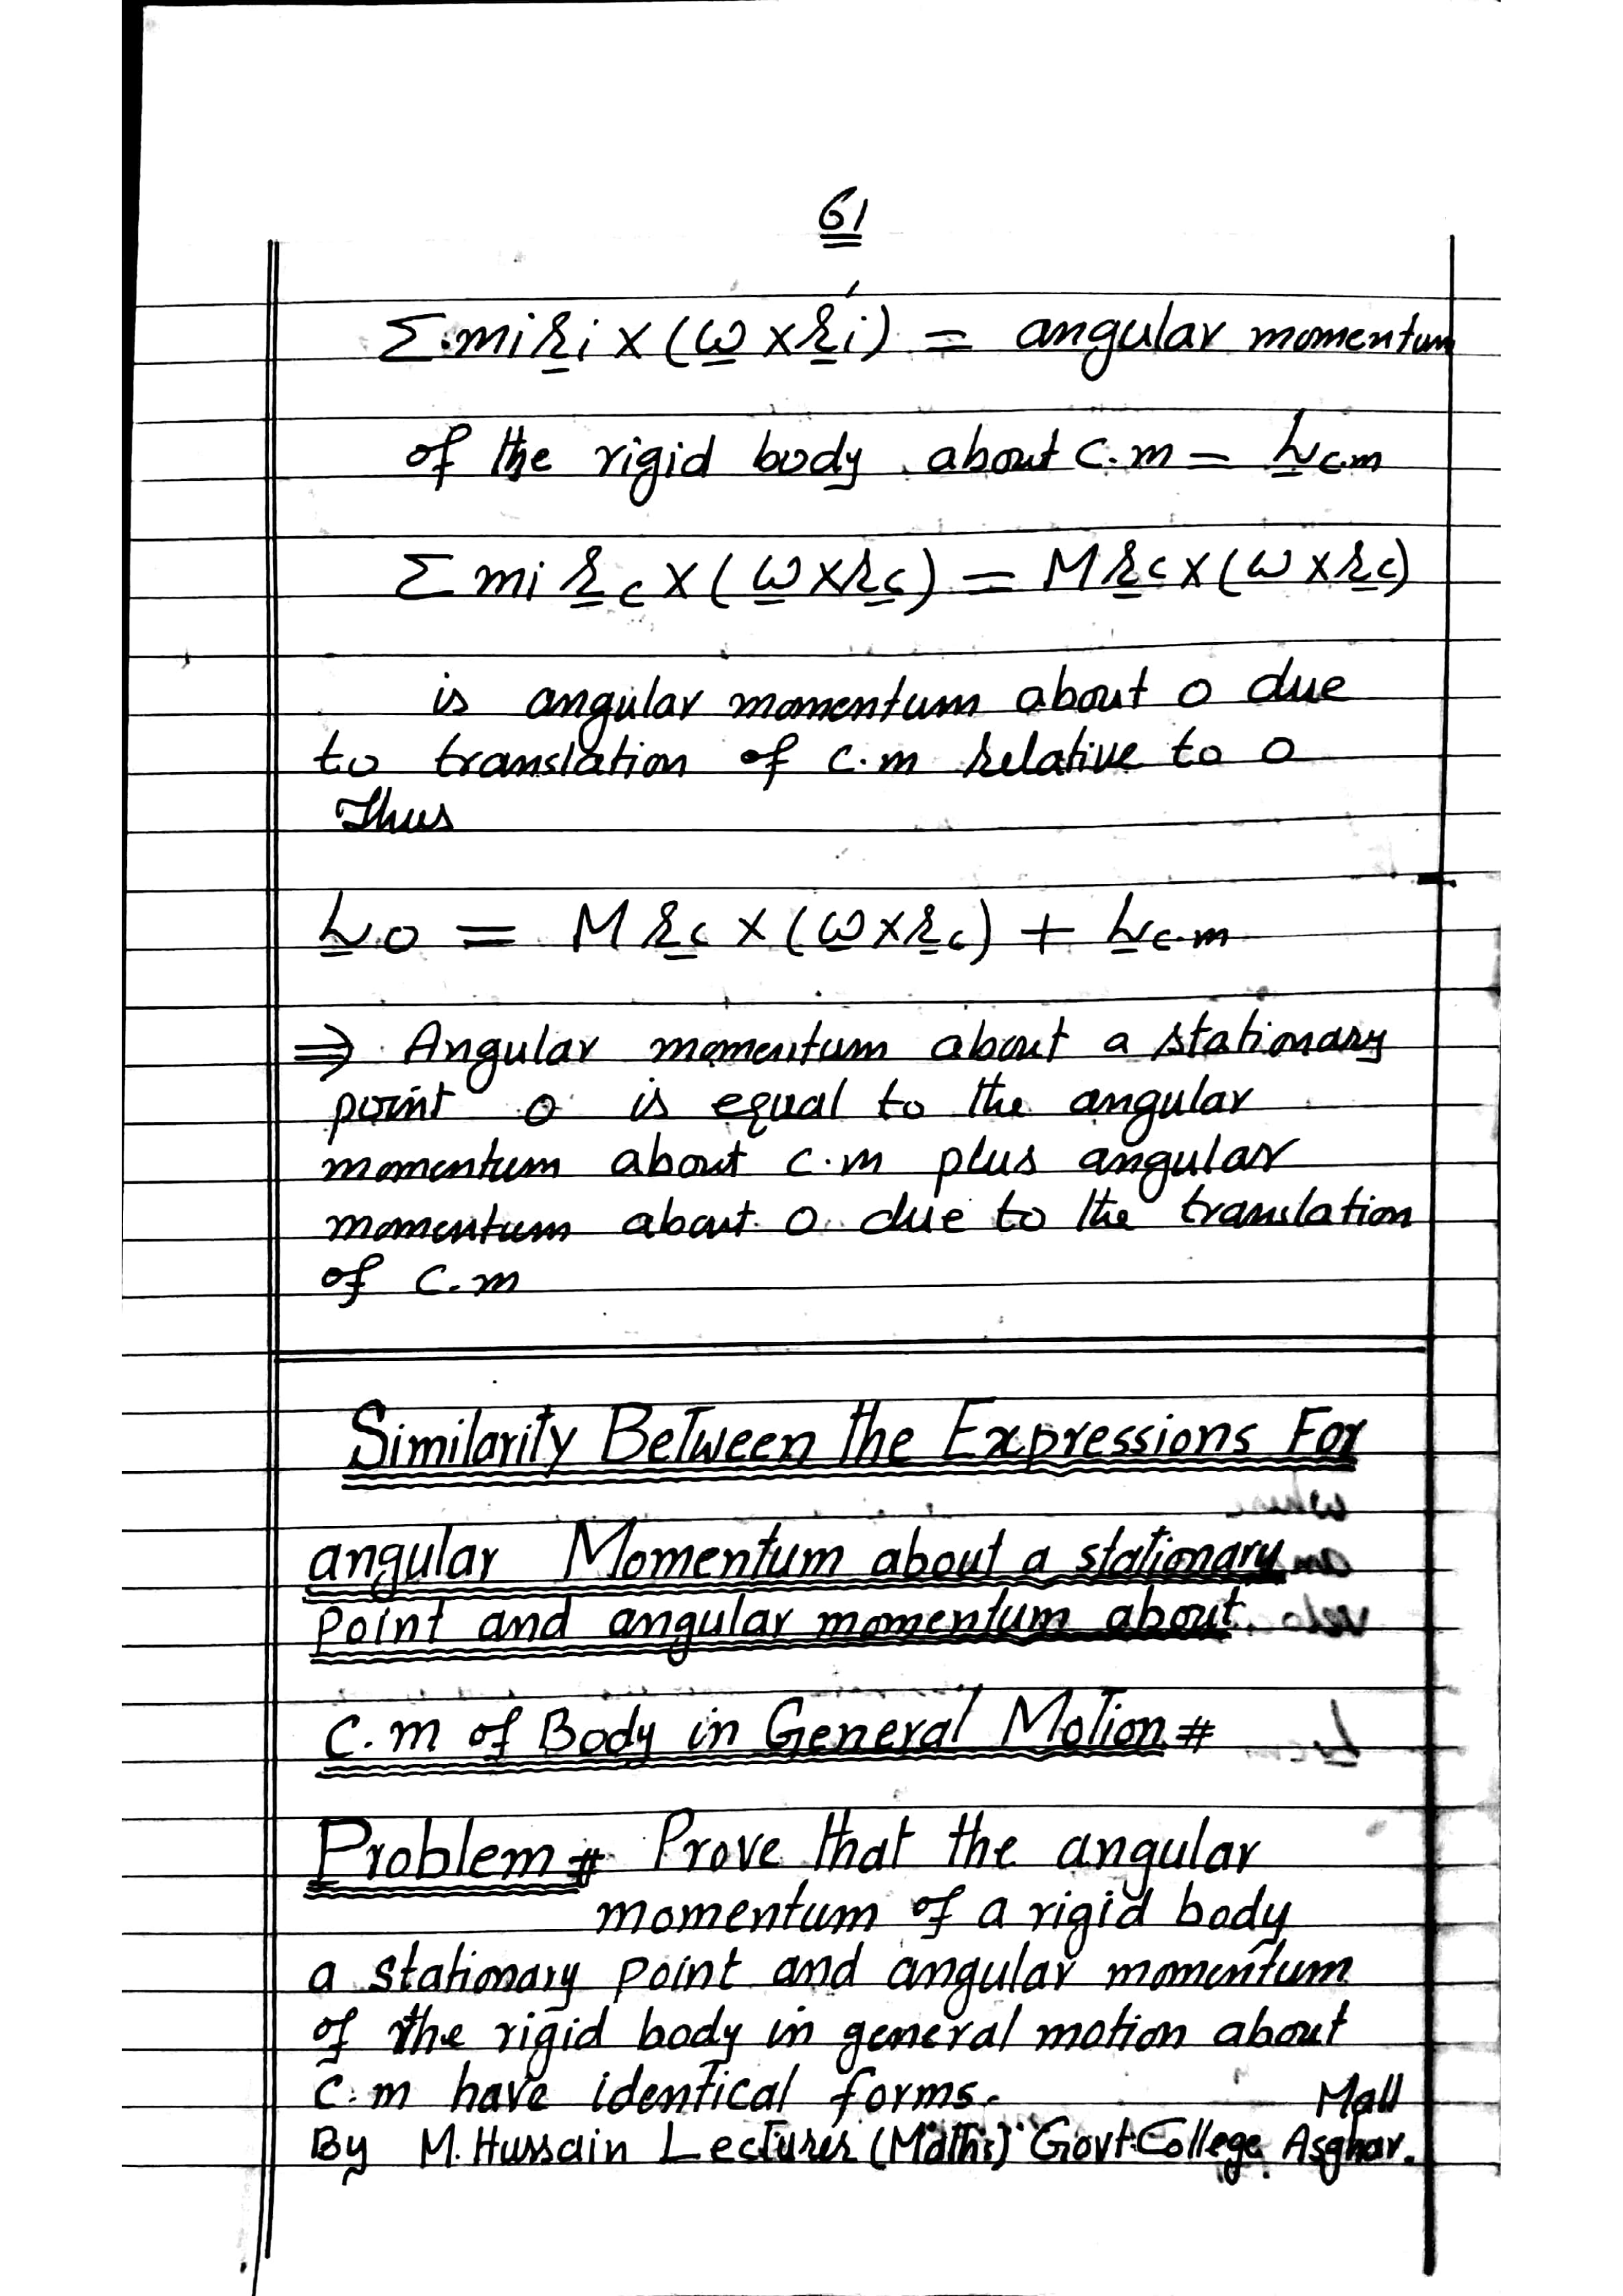 61
Σ mi ri × (ω × r'i) = angular momentum
of the rigid body about C.m = Lc.m
Σ mi rc × (ω × rc) = M rc × (ω × rc)
is angular momentum about o due
to translation of c.m relative to o
Thus
Lo = M rc × (ω × rc) + Lc.m
⇒ Angular momentum about a stationary
point o is equal to the angular
momentum about c.m plus angular
momentum about o due to the translation
of c.m
Similarity Between the Expressions For
angular Momentum about a stationary
point and angular momentum about
C.m of Body in General Motion #
Problem # Prove that the angular
momentum of a rigid body
a stationary point and angular momentum
of the rigid body in general motion about
c.m have identical forms.
By M. Hussain Lecturer (Maths) Govt College Asghar Mall